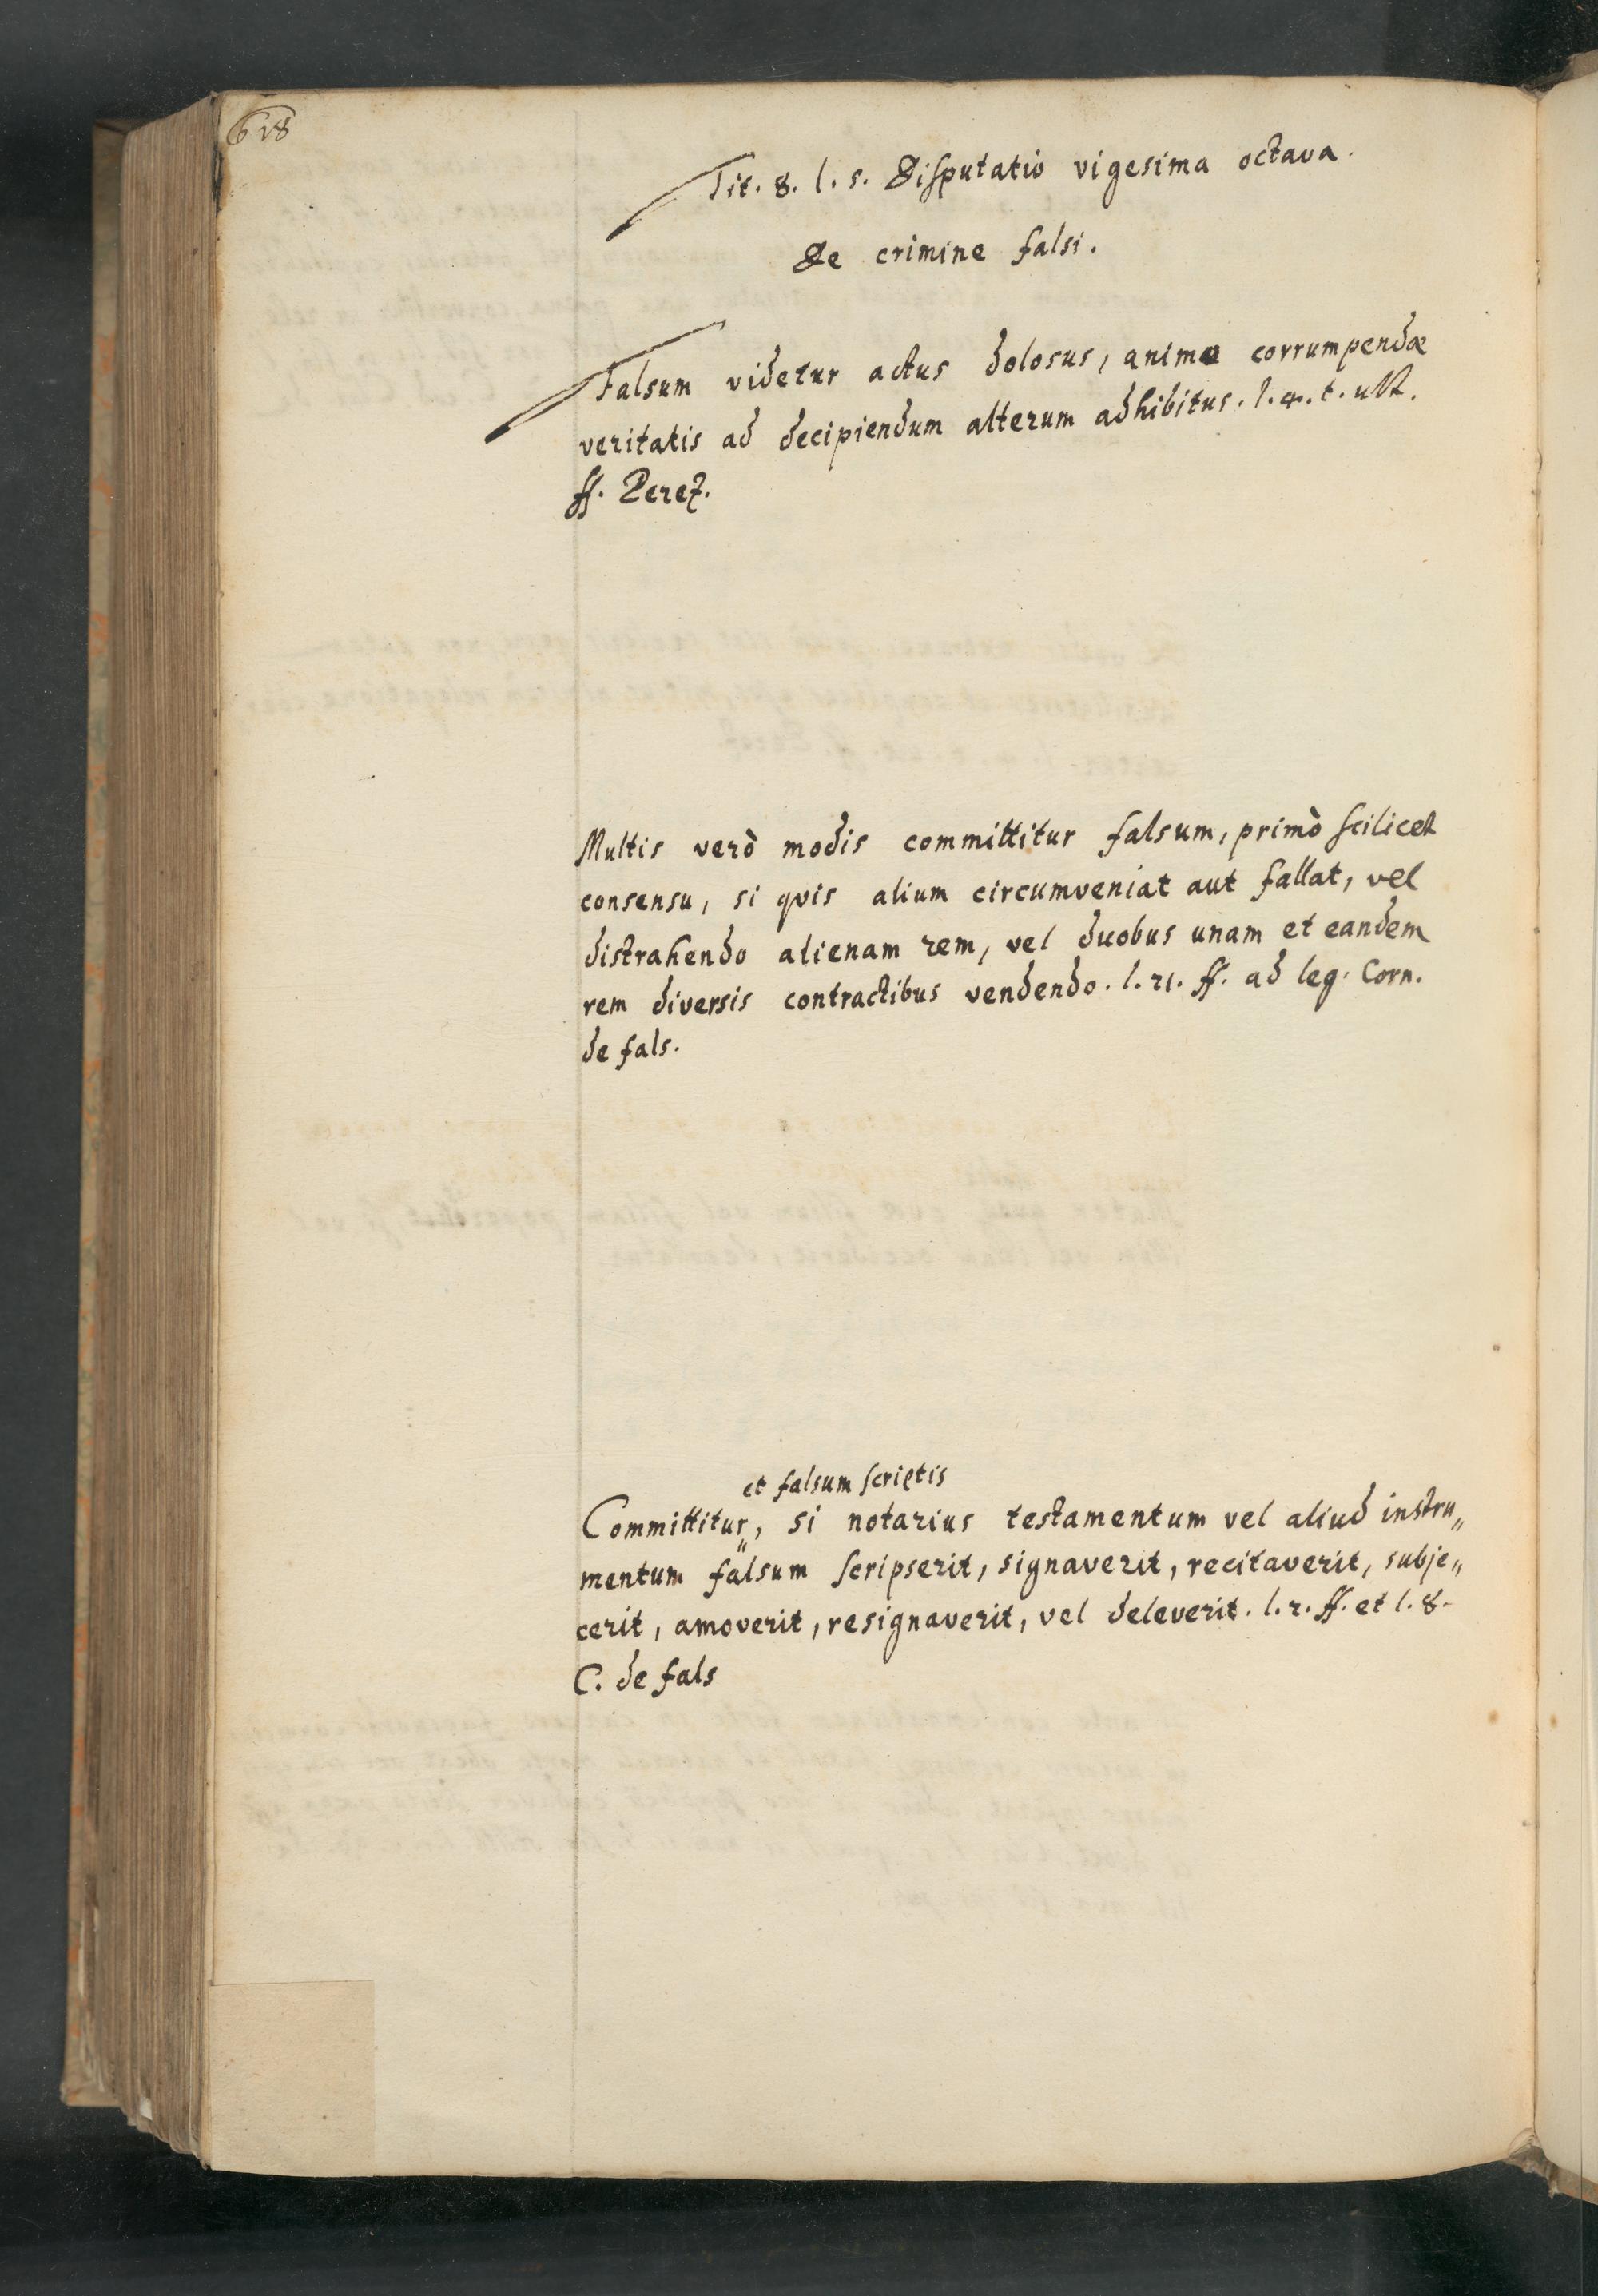 618
Tit. 8. l. 5. Disputatio vigesima octava.
De crimine falsi.
Falsum videtur actus dolosus, animo corrumpendæ
veritatis ad decipiendum alterum adhibitus. l. 4. t. ult.
ff. Perez.
Multis verò modis committitur falsum, primò scilicet
consensu, si quis alium circumveniat aut fallat, vel
distrahendo alienam rem, vel duobus unam et eandem
rem diversis contractibus vendendo. l. 21. ff. ad leg. Corn.
de fals.
et falsum scriptis
Committitur„, si notarius testamentum vel aliud instru„
mentum falsum scripserit, signaverit, recitaverit, subje„
cerit, amoverit, resignaverit, vel deleverit. l. 2. ff. et l. 8.
C. de fals